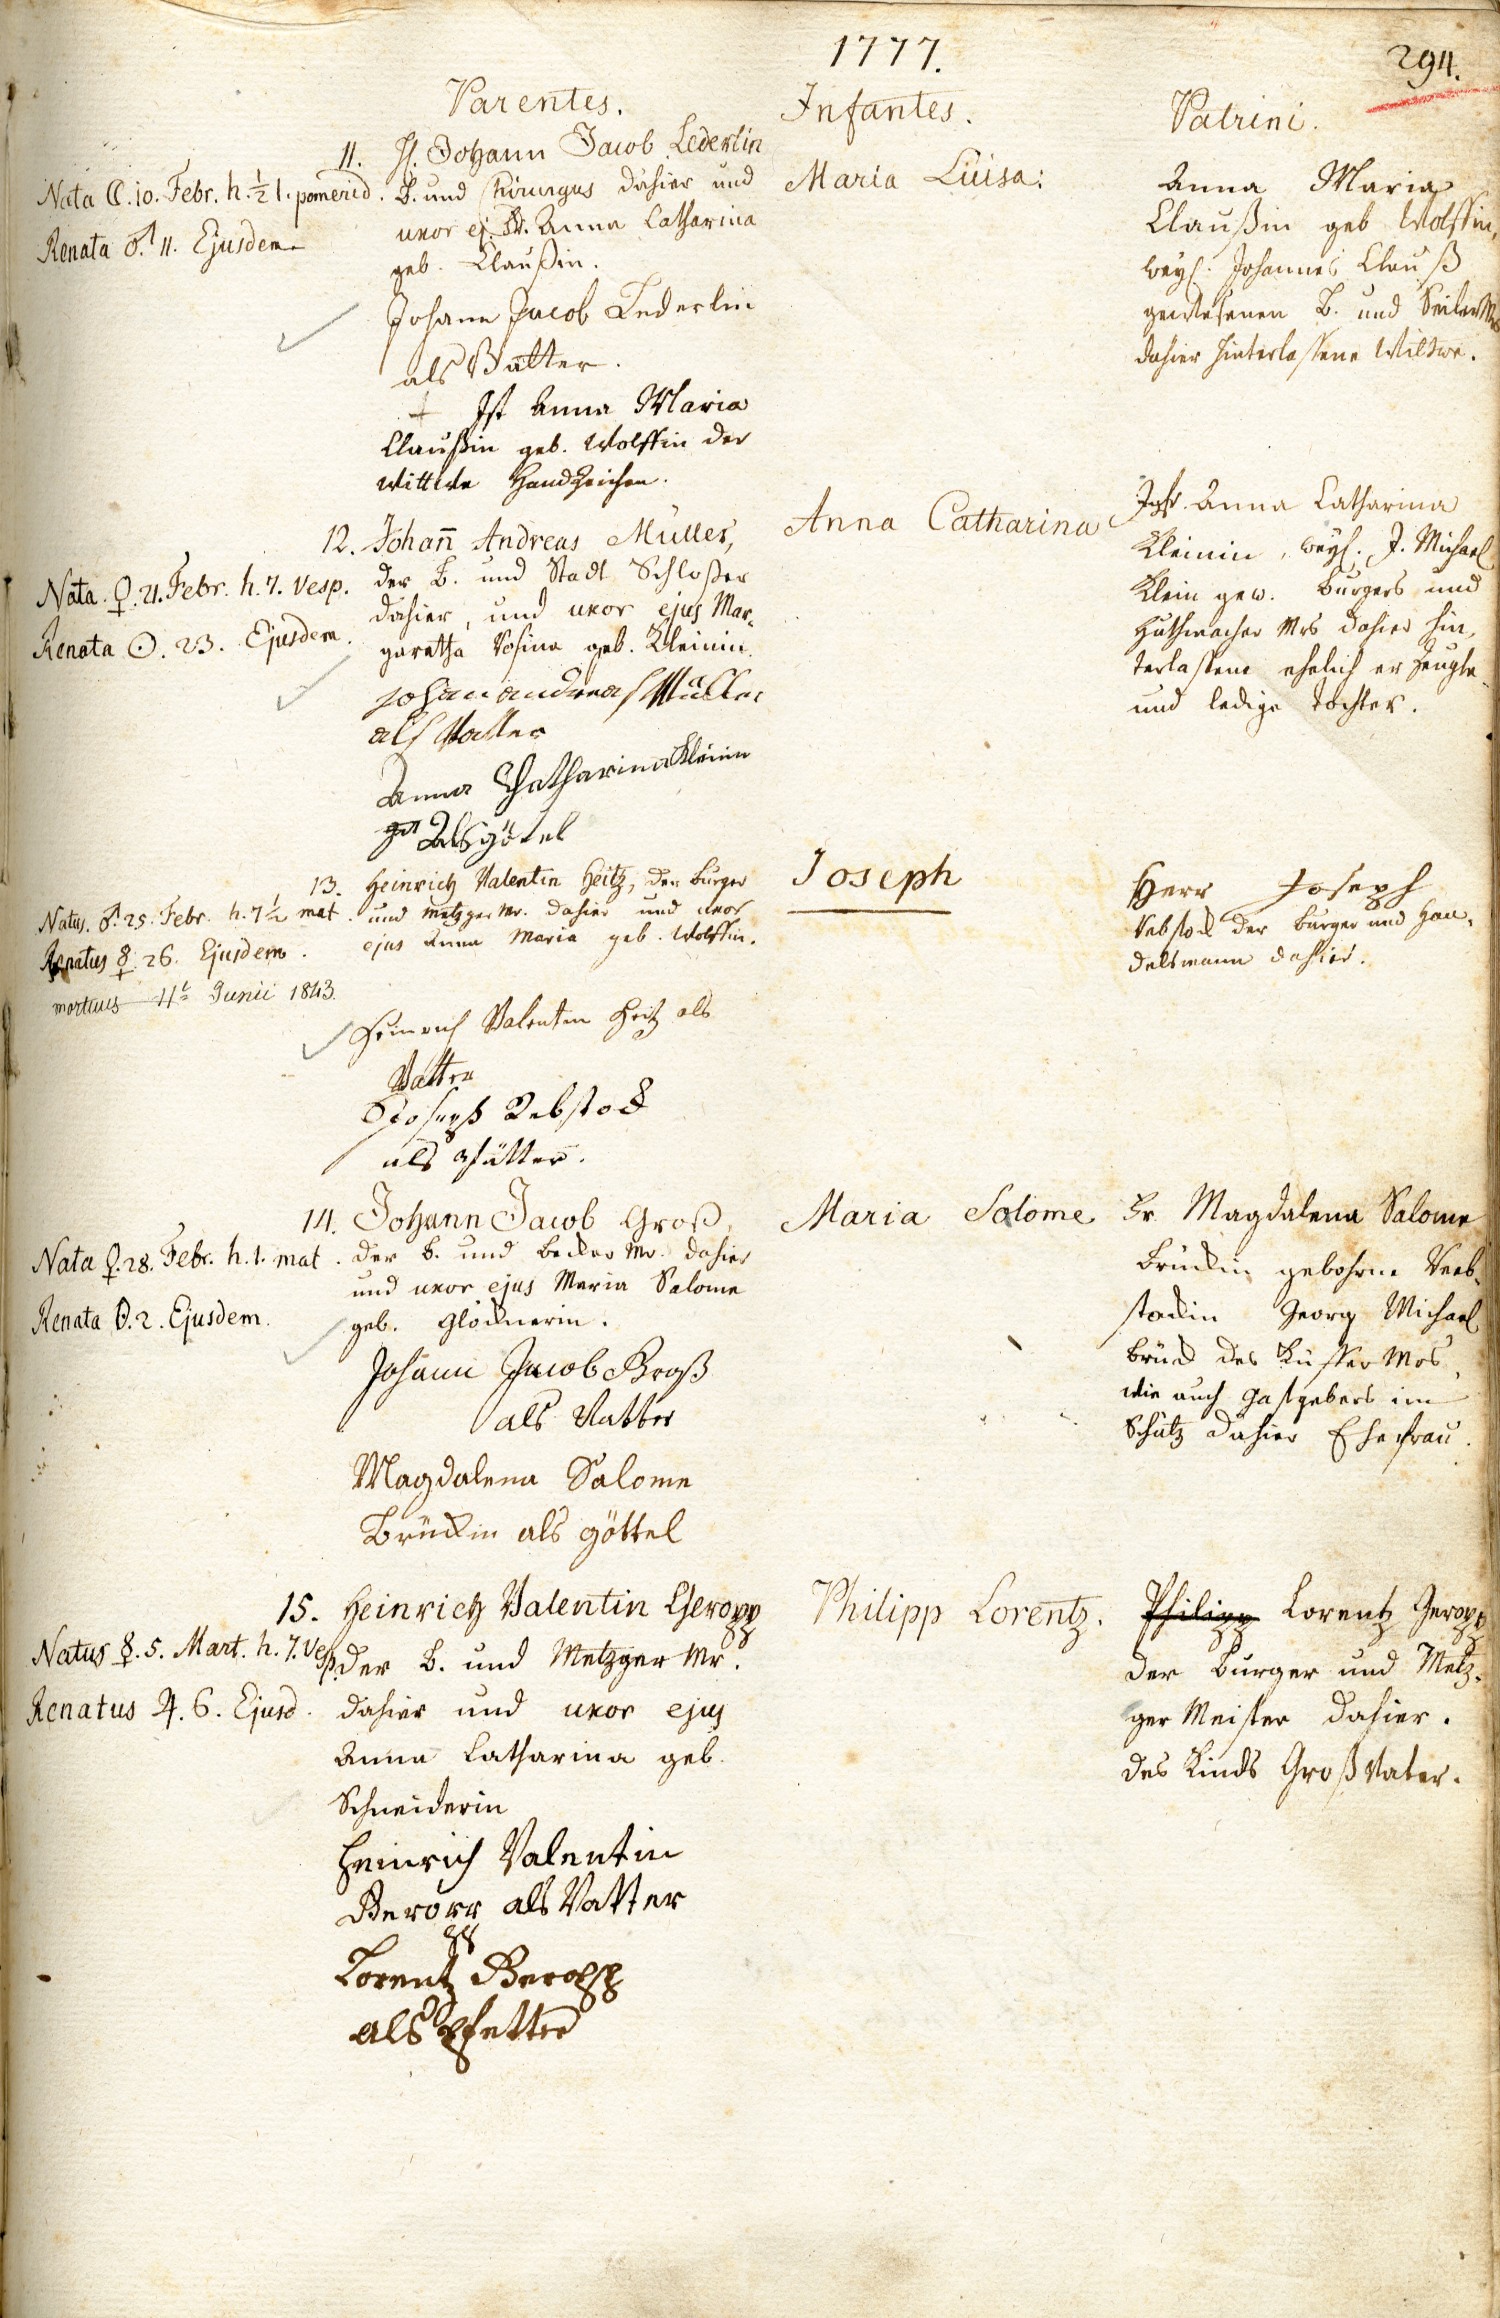 1777.
294.
Parentes.
Infantes.
Patrini.
11. H. Johann Jacob Lederlin
B. und Chirurgus dahier und
uxor ej. Fr. Anna Catharina
geb. Claußin.
Nata ☾. 10. Febr. h. ½ 1. pomerid.
Renata ♂. 11. Ejusdem
Johann Jacob Lederlin
als Vatter.
+ Ist Anna Maria
Claußin geb. Wolffin der
Wittwe Handzeichen.
Maria Luisa:
Anna Maria
Claußin geb Wolffin,
weyl. Johannes Clauß
gewesenen B. und Seiler Mrs
dahier hinterlassene Wittwe.
12. Johañ Andreas Müller,
der B. und Stadt Schloßer
dahier, und uxor ejus Mar-
garetha Rosina geb. Kleinin.
Nata. ♀. 21. Febr. h. 7. Vesp.
Renata ☉. 23. Ejusdem.
Johan andreas Müller
als Vatter
Anna Chatharina Kleinin
Als götel
Anna Catharina
Jgfr. Anna Catharina
Kleinin, weyl. J. Michael
Klein gew. Burgers und
Huthmacher Mrs dahier hin-
terlassene ehelich erzeugte
und ledige Tochter.
13. Heinrich Valentin Heitz, der Burger
und Metzger Mr. dahier und uxor
ejus Anna Maria geb. Wolffin.
Natus. ♂. 25. Febr. h. 7½ mat.
Renatus ☿. 26. Ejusdem.
mortuus 11t Junii 1843.
Heinrich Valentin Heitz als
Vatter
Joseph Rebstock
als Pfätter.
Joseph
Herr Joseph
Rebstock der Burger und Han-
delsmann dahier.
14. Johann Jacob Groß,
der B. und Becker Mr. dahier
und uxor ejus Maria Salome
geb. Glöcknerin.
Nata ♀. 28. Febr. h. 1. mat.
Renata ☉. 2. Ejusdem.
Johann Jacob Groß
als Vatter
Magdalena Salome
Brückin als göttel
Maria Salome
Fr. Magdalena Salome
Brückin gebohrne Reeb-
stockin Georg Michael
Brück des Küffer Mrs,
wie auch Gastgebers im
Schütz dahier Ehefrau.
15. Heinrich Valentin Geropp
der B. und Metzger Mr.
dahier und uxor ejus
Anna Catharina geb.
Schneiderin
Natus ☿. 5. Mart. h. 7. Vesp.
Renatus ♃. 6. Ejusd.
Heinrich Valentin
Geropp als Vatter
Lorentz Geropp
als Pfetter
Philipp Lorentz.
Philipp Lorentz Geropp
der Burger und Metz-
ger Meister dahier.
des Kinds Großvater.